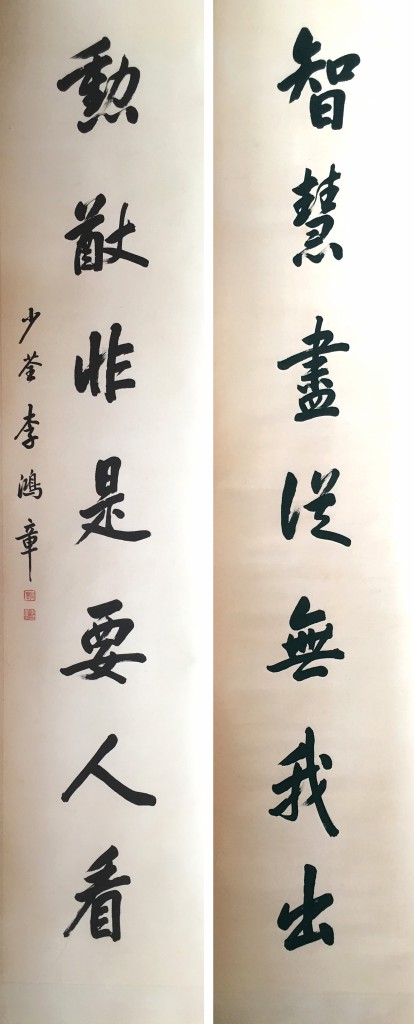 智慧盡從無我出
勳猷非是要人看
少荃李鴻章